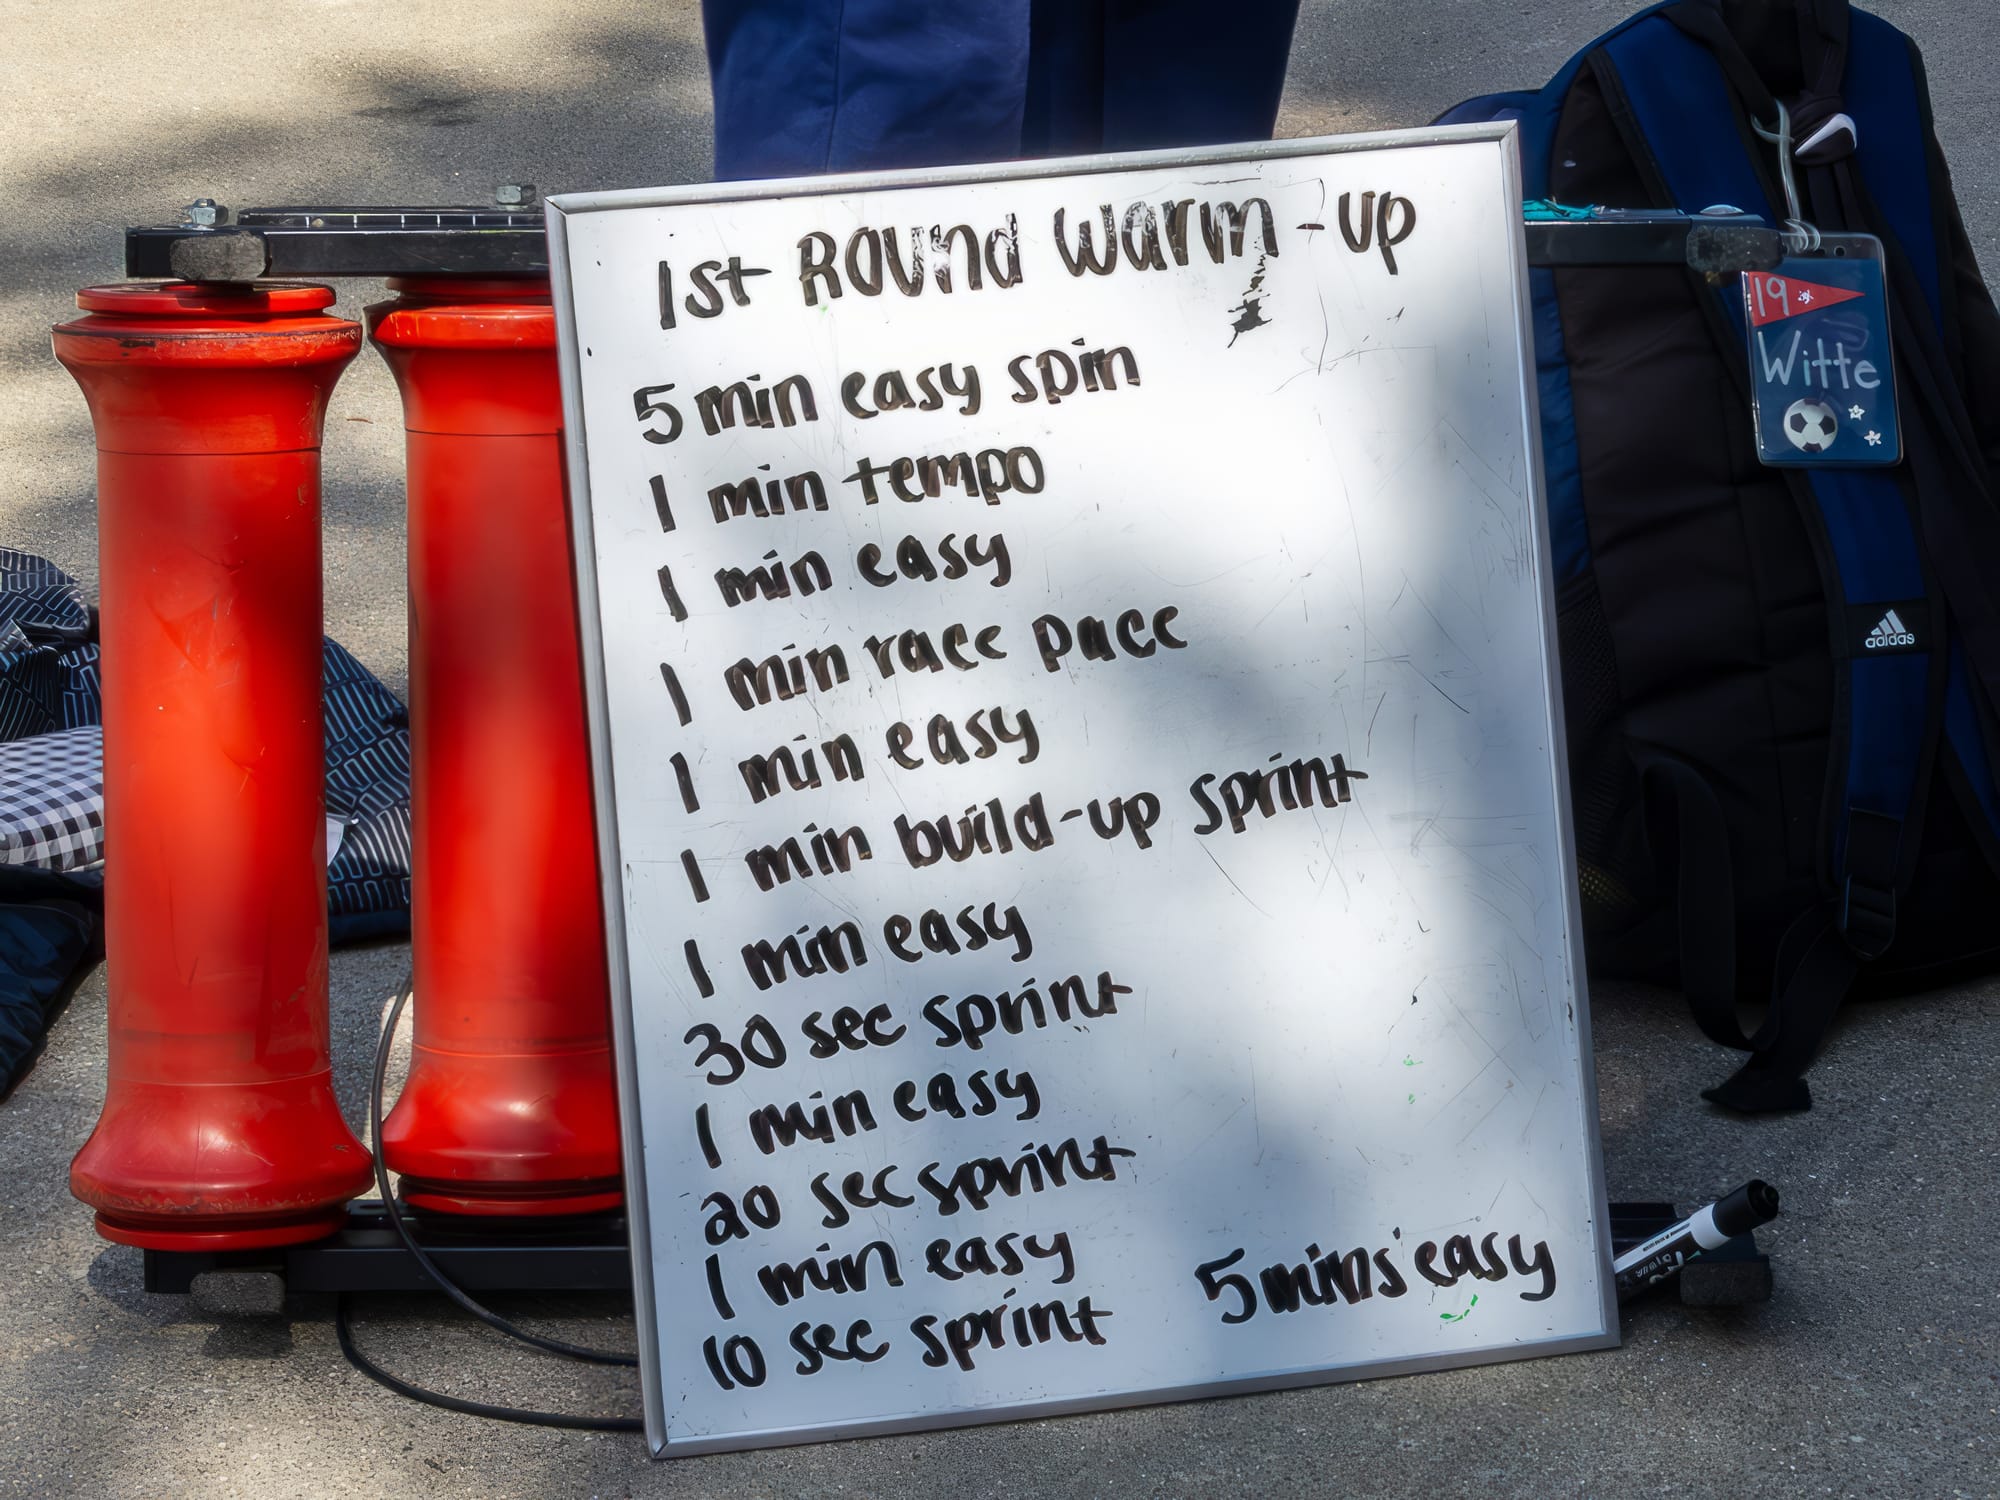 1st Round Warm-up
5 min easy spin
1 min tempo
1 min easy
1 min race pace
1 min easy
1 min build-up sprint
1 min easy
30 sec sprint
1 min easy
20 sec sprint
1 min easy
10 sec sprint
5 mins easy
19
Witte
adidas